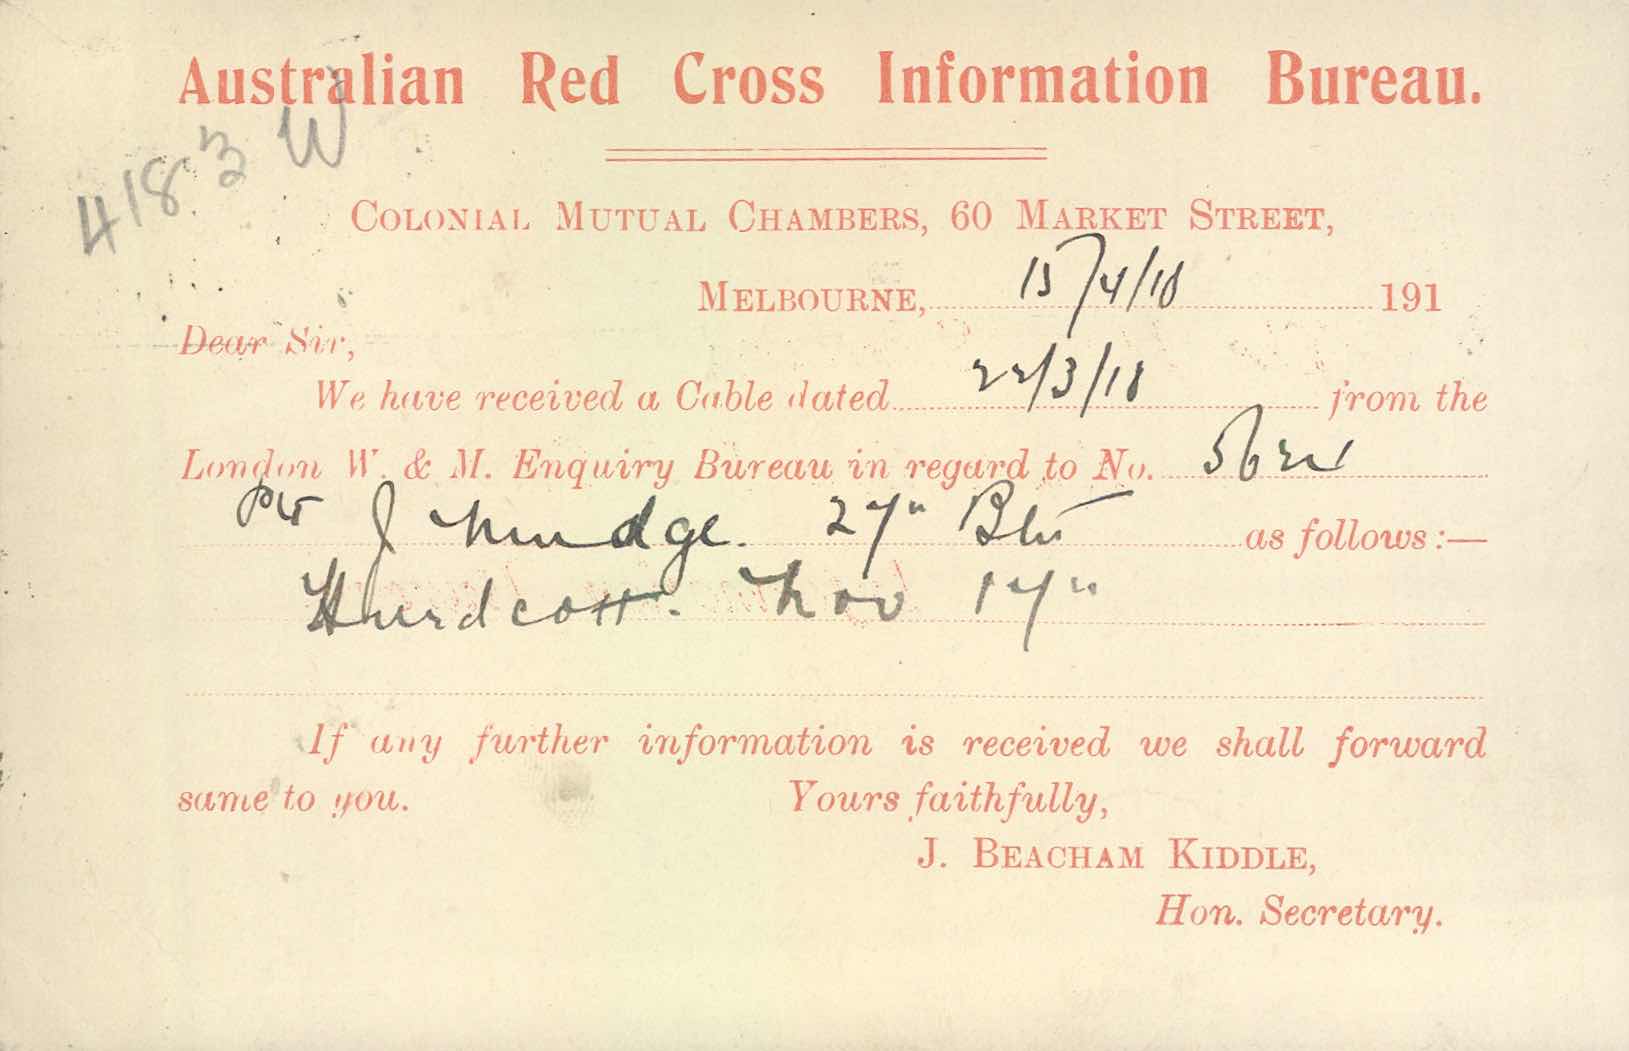 Australian Red Cross Information Bureau.
4183 W
COLONIAL MUTUAL CHAMBERS, 60 MARKET STREET,
MELBOURNE, 15/4/18 191
Dear Sir,
We have received a Cable dated 22/3/18 from the
London W. & M. Enquiry Bureau in regard to No.
Pte J Mudge. 27" Btn as follows:—
Hurdcott. Nov 17"
If any further information is received we shall forward
same to you. Yours faithfully,
J. BEACHAM KIDDLE,
Hon. Secretary.